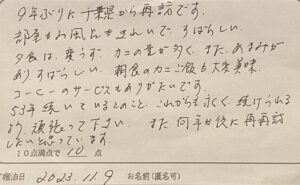 9年ぶりに千葉県から再訪です。
部屋もお風呂もきれいで すばらしい。
夕食は、変らず カニの量が多く、また、あまみが
ありすばらしい。朝食のカニご飯も大変美味。
コーヒーのサービスもありがたいです。
53年続いているとのこと、これからも永く、続けられる
よう、頑張って下さい。また何年か後に再再訪
したいと思っています。
10点満点で 10 点
宿泊日 2023.11.9 お名前(匿名可)